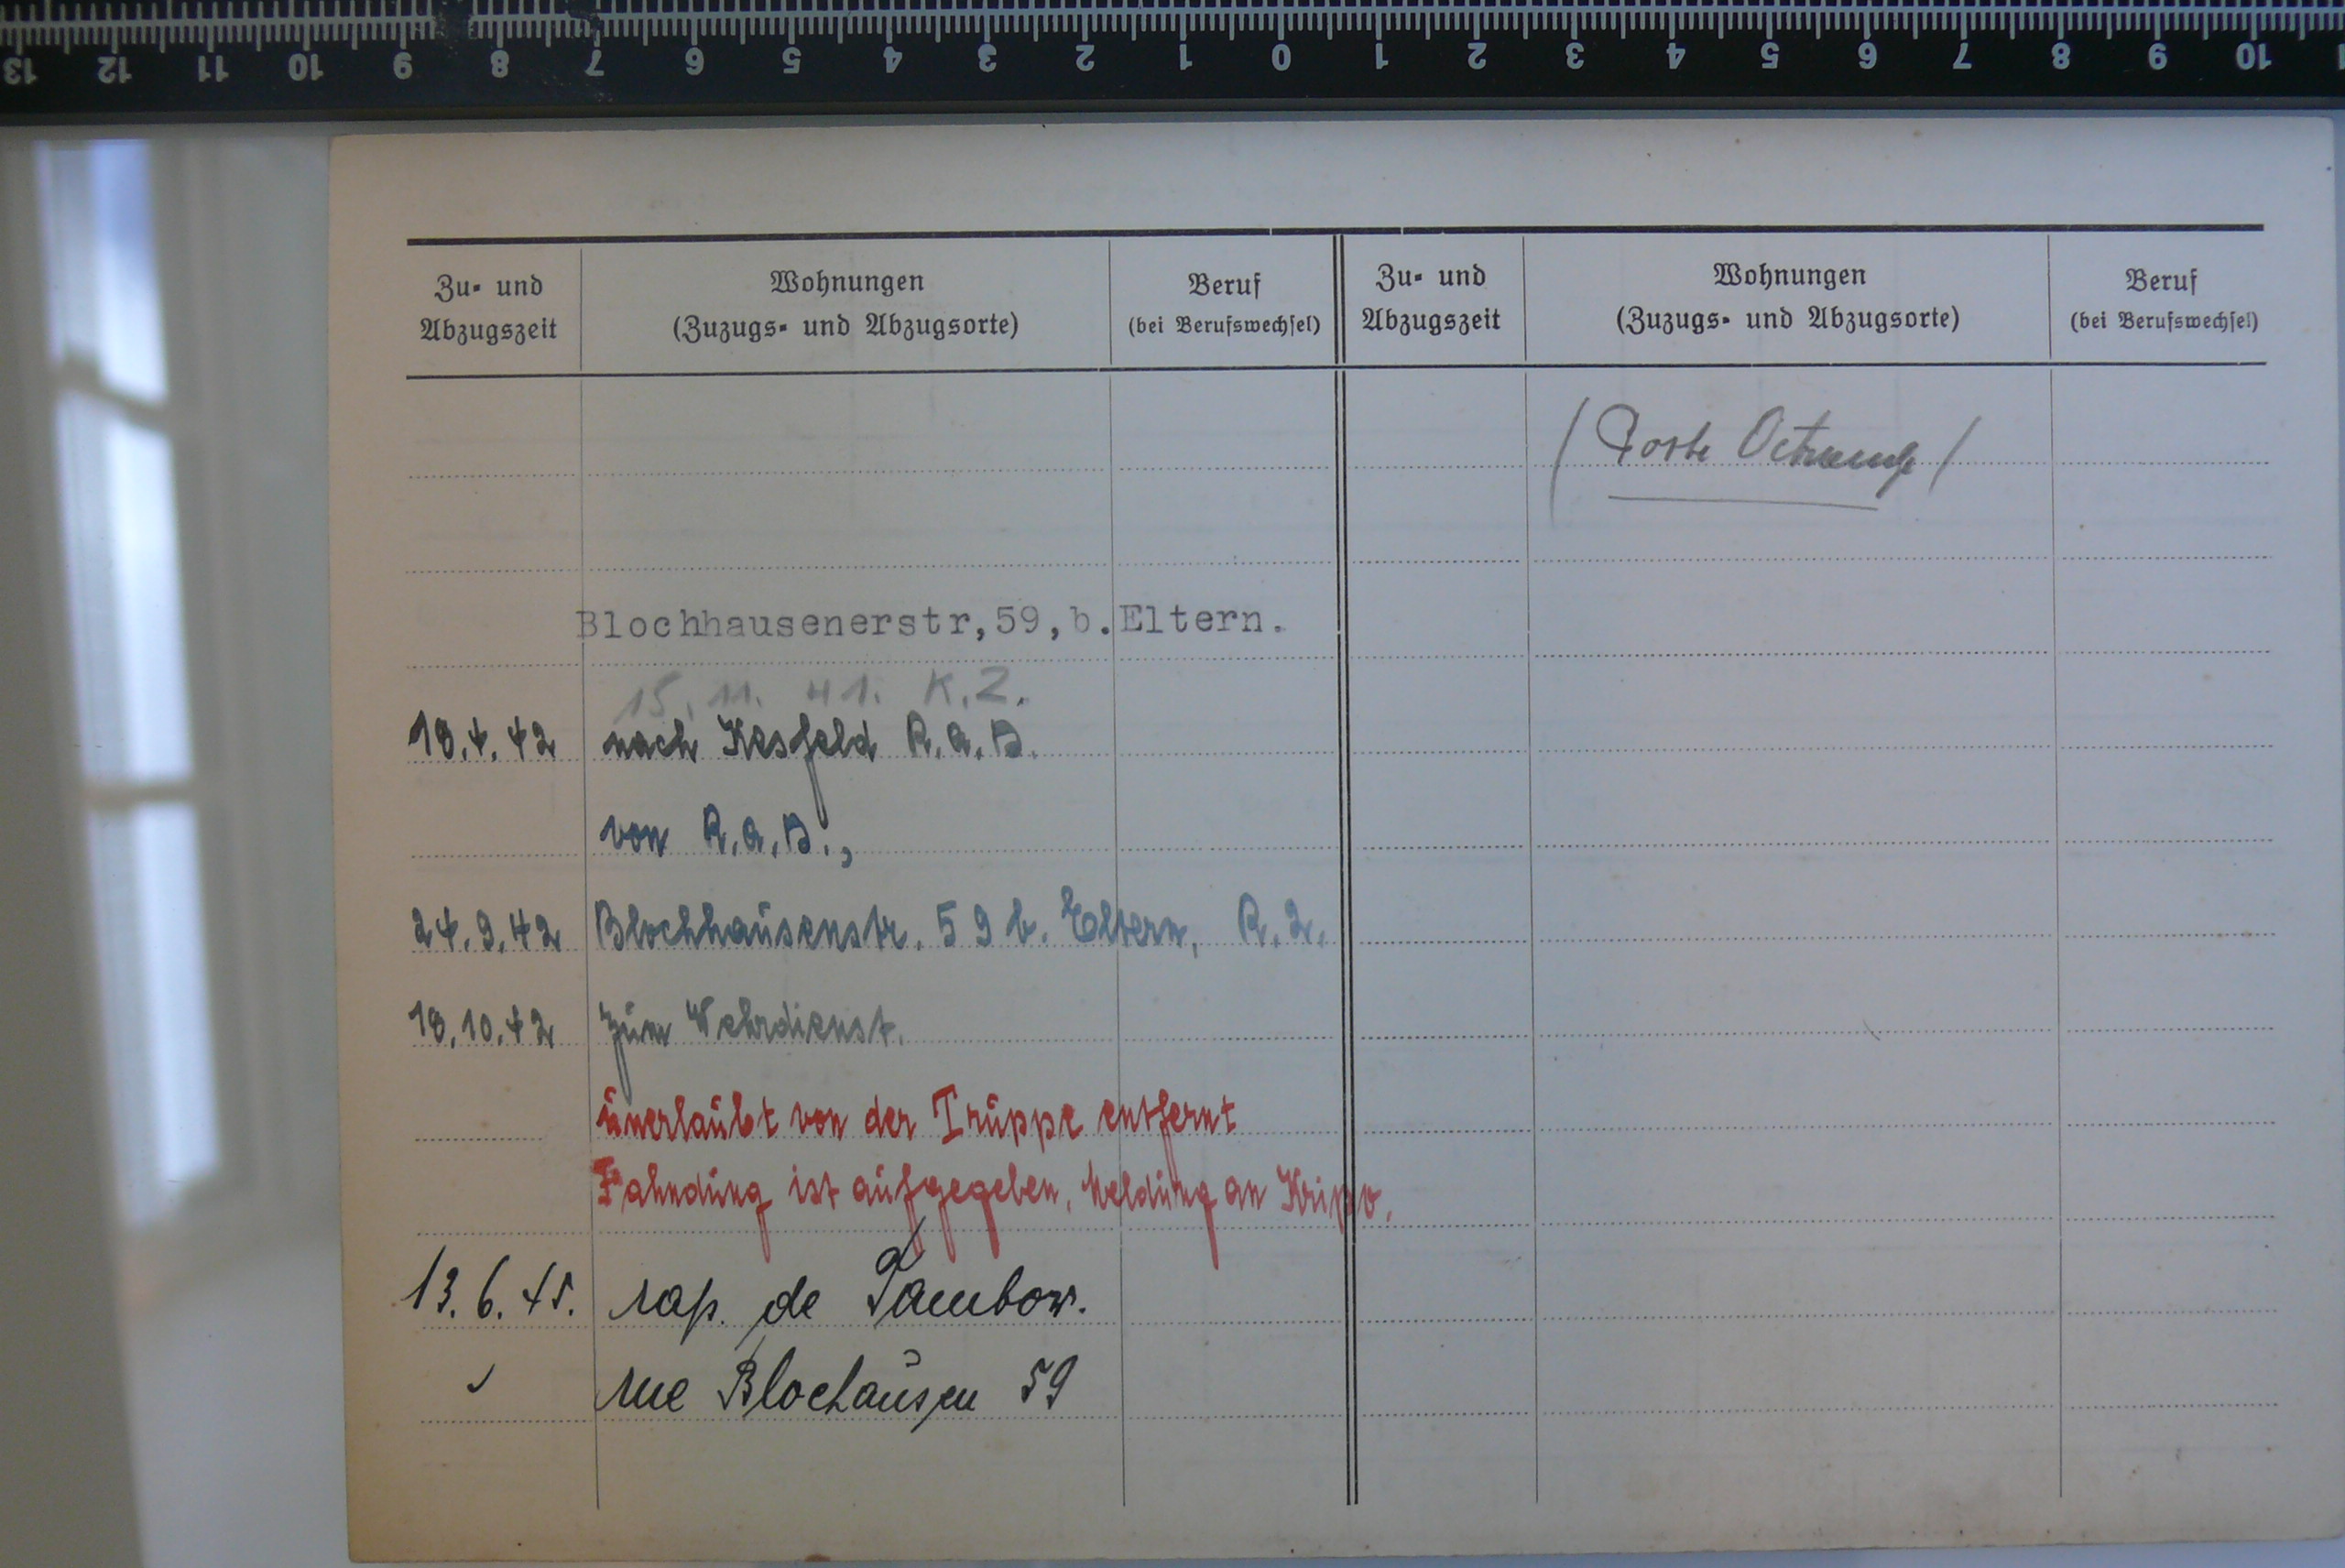 13 12 11 10 9 8 7 6 5 4 3 2 1 0 1 2 3 4 5 6 7 8 9 10
Zu- und Abzugszeit
Wohnungen (Zuzugs- und Abzugsorte)
Beruf (bei Berufswechsel)
Zu- und Abzugszeit
Wohnungen (Zuzugs- und Abzugsorte)
Beruf (bei Berufswechsel)
Blochhausenerstr,59,b.Eltern.
15.11.41. K.Z.
18.4.42 nach Kesfeld R.A.D.
von R.A.D.,
24.9.42 Blochhausenstr. 59 b. Eltern, R.2.
18.10.42 zum Wehrdienst.
unerlaubt von der Truppe entfernt
Fahndung ist aufgegeben. Meldung an Kripo.
13.6.45. rap. de Tambow.
rue Blochausen 59